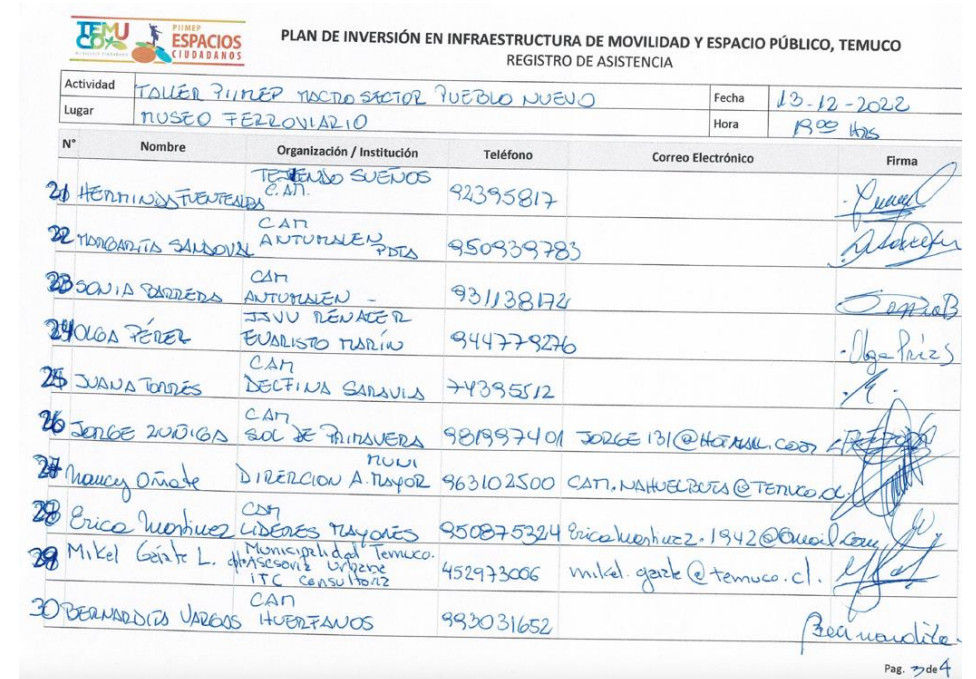 TEMUCO
PIIMEP
ESPACIOS
CIUDADANOS
PLAN DE INVERSIÓN EN INFRAESTRUCTURA DE MOVILIDAD Y ESPACIO PÚBLICO, TEMUCO
REGISTRO DE ASISTENCIA
Actividad TALLER PIIMEP MACRO SECTOR PUEBLO NUEVO Fecha 13-12-2022
Lugar MUSEO FERROVIARIO Hora 19:00 HRS
N° Nombre Organización / Institución Teléfono Correo Electrónico Firma
TEJIENDO SUEÑOS
21 HERMINDA FUENTEALBA C.AM. 92395817
CAM
22 MARGARITA SANDOVAL ANTUMALEN PDTA 950939783
CAM
23 SONIA BARRERA ANTUMALEN - 931138172 Sonia B
JJVV RENACER
24 OLGA PÉREZ EVARISTO MARÍN 944779276 Olga Pérez S
CAM
25 JUANA TORRES DELFINA SARAVIA 74395512
CAM
26 JORGE ZUÑIGA SOL DE PRIMAVERA 981997401 JORGE 131@HOTMAIL.COM
MUNI
27 Nancy Oñate DIRERCION A. MAYOR 963102500 CAM.NAHUELBUTA@TEMUCO.CL
CAM
28 Erica Martinez LIDERES MAYORES 950875324 Ericamartinez.1942@Gmail.com
29 Mikel Gárate L. Municipalidad Temuco.
Asesoria Urbana
ITC Consultoria 452973006 mikel.garate@temuco.cl.
CAM
30 BERNARDITA VARGAS HUERFANOS 993031652 Bernardita.
Pag. 3 de 4